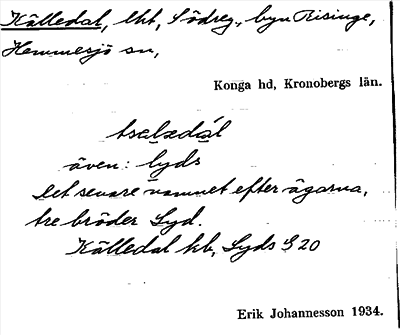 Källedal, lht, Södreg., byn Risinge,
Hemmesjö sn,
Konga hd, Kronobergs län.
tsælədál
även: lyds
Det senare namnet efter ägarna,
tre bröder Lyd.
Källedal kb, Lyds § 20
Erik Johannesson 1934.